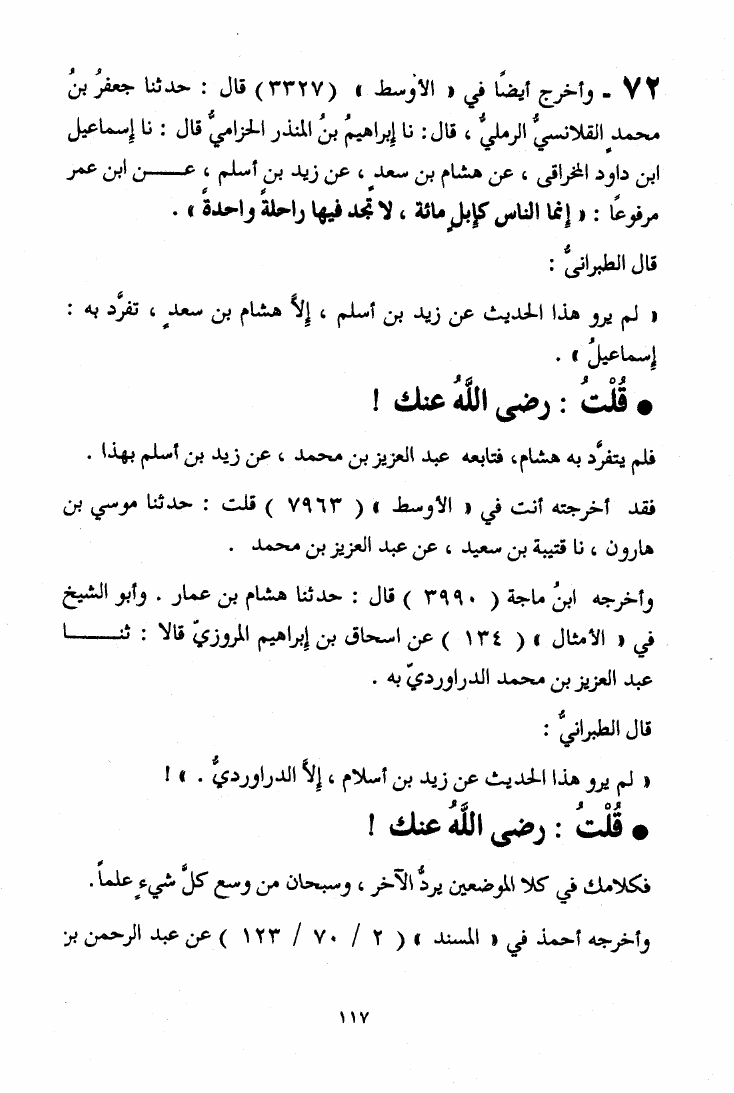 ٧٢ - وأخرج أيضًا في « الأوسط » (٣٣٢٧) قال : حدثنا جعفرُ بنُ
محمدٍ القلانسيُّ الرمليُّ ، قال: نا إبراهيمُ بنُ المنذر الحزاميُّ قال : نا إسماعيل
ابن داود المخراقى ، عن هشام بن سعدٍ ، عن زيد بن أسلم ، عـــن ابن عمر
مرفوعًا : « إنما الناس كإبلٍ مائة ، لا تجد فيها راحلةً واحدةً » .
قال الطبرانىُّ :
« لم يرو هذا الحديث عن زيد بن أسلم ، إلاَّ هشام بن سعدٍ ، تفرَّد به :
إسماعيلُ » .
● قُلْتُ : رضى اللَّهُ عنك !
فلم يتفرَّد به هشام، فتابعه عبد العزيز بن محمد ، عن زيد بن أسلم بهذا .
فقد أخرجته أنت في « الأوسط » ( ٧٩٦٣ ) قلت : حدثنا موسي بن
هارون ، نا قتيبة بن سعيد ، عن عبد العزيز بن محمد .
وأخرجه ابنُ ماجة ( ٣٩٩٠ ) قال : حدثنا هشام بن عمار . وأبو الشيخ
في « الأمثال » ( ١٣٤ ) عن اسحاق بن إبراهيم المروزيّ قالا : ثنـــــا
عبد العزيز بن محمد الدراورديّ به .
قال الطبرانيُّ :
« لم يرو هذا الحديث عن زيد بن أسلام ، إلاَّ الدراورديُّ . » !
● قُلْتُ : رضى اللَّهُ عنك !
فكلامك في كلا الموضعين يردُّ الآخر ، وسبحان من وسع كلَّ شيءٍ علماً.
وأخرجه أحمذ في « المسند » ( ٢ / ٧٠ / ١٢٣ ) عن عبد الرحمن بن
١١٧